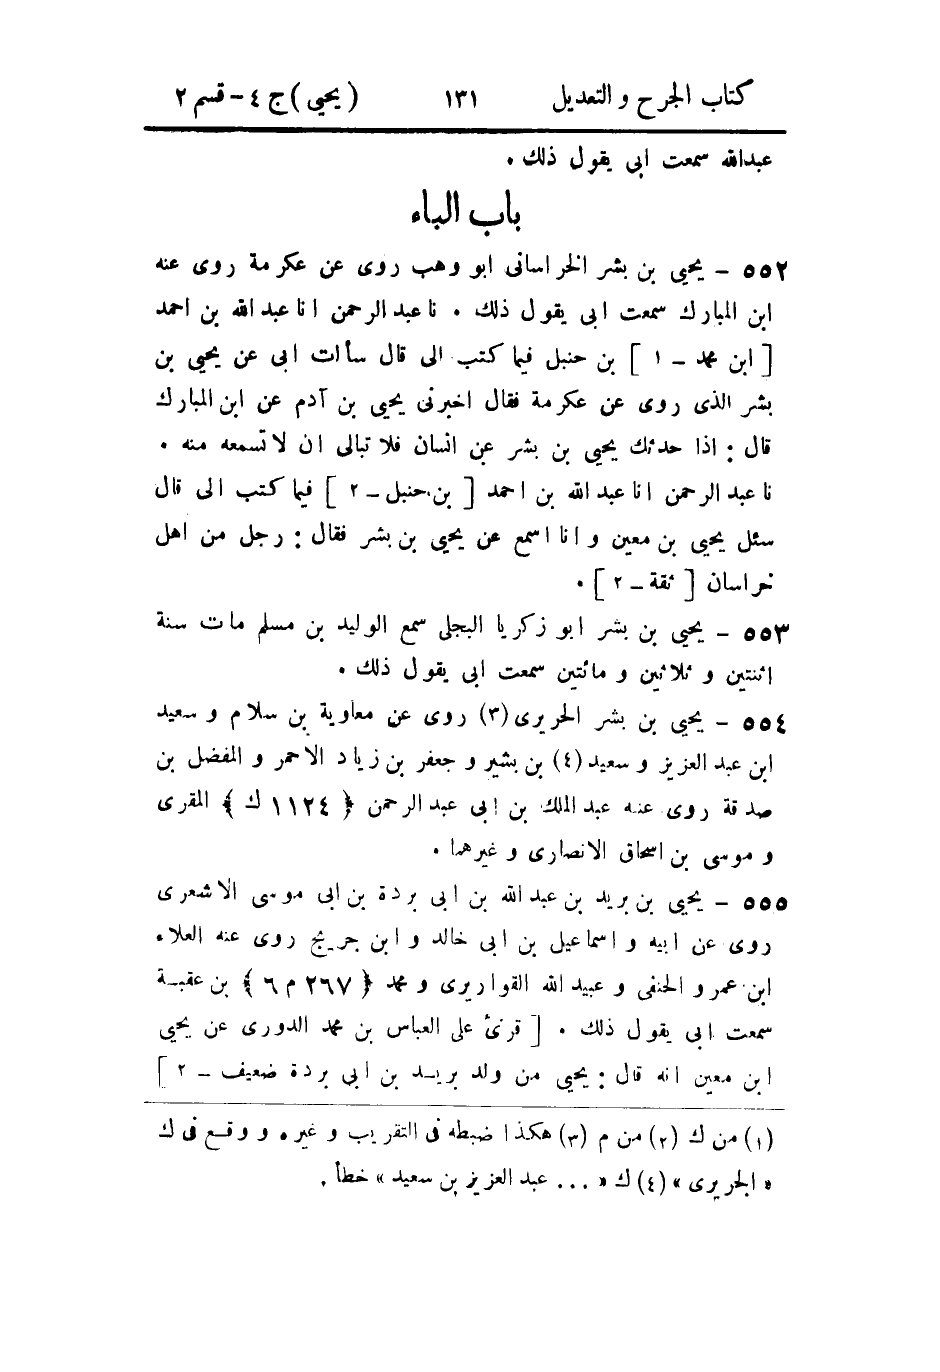 كتاب الجرح و التعديل ١٣١ (يحيى) ج ٤ – قسم ٢
عبدالله سمعت ابى يقول ذلك .
باب الباء
٥٥٢ – يحيى بن بشر الخراسانى ابو وهب روى عن عكرمة روى عنه
ابن المبارك سمعت ابى يقول ذلك . نا عبد الرحمن انا عبد الله بن احمد
[ ابن محمد – ١ ] بن حنبل فيما كتب الى قال سألت ابى عن يحيى بن
بشر الذى روى عن عكرمة فقال اخبرنى يحيى بن آدم عن ابن المبارك
قال : اذا حدثك يحيى بن بشر عن انسان فلا تبالى ان لا تسمعه منه .
نا عبد الرحمن انا عبد الله بن احمد [ بن حنبل – ٢ ] فيما كتب الى قال
سئل يحيى بن معين و انا اسمع عن يحيى بن بشر فقال : رجل من اهل
خراسان [ ثقة – ٢ ] .
٥٥٣ – يحيى بن بشر ابو زكريا البجلى سمع الوليد بن مسلم مات سنة
اثنتين و ثلاثين و مائتين سمعت ابى يقول ذلك .
٥٥٤ – يحيى بن بشر الحريرى (٣) روى عن معاوية بن سلام و سعيد
ابن عبد العزيز و سعيد (٤) بن بشير و جعفر بن زياد الاحمر و المفضل بن
صدقة روى عنه عبد الملك بن ابى عبد الرحمن ﴿ ١١٢٤ ك ﴾ المقرى
و موسى بن اسحاق الانصارى و غيرهما .
٥٥٥ – يحيى بن بريد بن عبد الله بن ابى بردة بن ابى موسى الاشعرى
روى عن ابيه و اسماعيل بن ابى خالد و ابن جريج روى عنه العلاء
ابن عمرو الحنفى و عبيد الله القواريرى و محمد ﴿ ٢٦٧ م ٦ ﴾ بن عقبة
سمعت ابى يقول ذلك . [ قرئ على العباس بن محمد الدورى عن يحيى
ابن معين انه قال : يحيى من ولد بريد بن ابى بردة ضعيف – ٢ ]
(١) من ك (٢) من م (٣) هكذا ضبطه فى التقريب و غيره و وقع فى ك
« الجريرى » (٤) ك « ... عبد العزيز بن سعيد » خطأ .